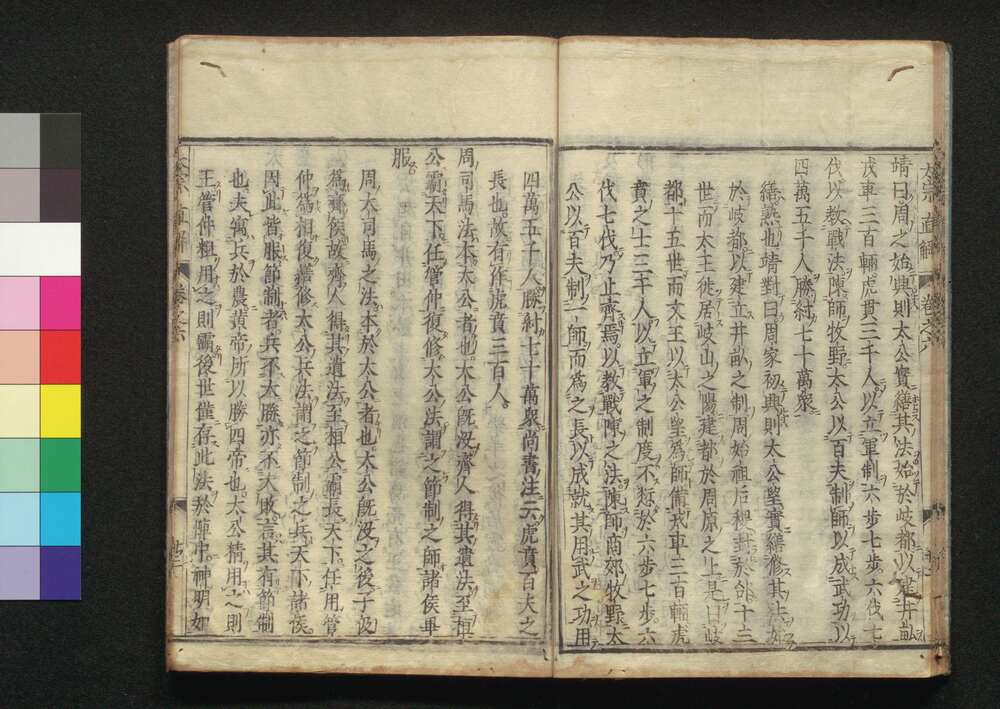 靖曰周之始興則太公實繕其法始於岐都以建井畝
戎車三百輛虎賁三千人以立軍制六步七步六伐七
伐以教戰法陳師牧野太公以百夫制師以成武功以
四萬五千人勝紂七十萬衆
繕熟也靖對曰周家初興則太公望實繕修其法
於岐都以建立井畝之制周始祖后稷封於邰十三
世而太王徙居岐山之陽建都於周原之上是曰岐
都十五世而文王以太公望爲師備戎車三百輛虎
賁之士三千人以立軍之制度不愆於六步七步六
伐七伐乃止齊焉以教戰陳之法陳師商郊牧野太
公以百夫制一師而爲之長以成就其用武之功用
四萬五千人勝紂七十萬衆尚書注云虎賁百夫之
長也故有作虎賁三百人
周司馬法本太公者也太公既沒齊人得其遺法至桓
公霸天下任管仲復修太公法謂之節制之師諸侯畢
服
周大司馬之法本於太公者也太公既沒之後子伋
爲齊侯故齊人得其遺法至桓公霸長天下任用管
仲爲相復繕修太公兵法謂之節制之兵天下諸侯
因此皆服節制者兵不大勝亦不大敗言其有節制
也夫寓兵於農黃帝所以勝四帝也太公精用之則
王管仲粗用之則霸後世僅存此法於陣中神明如